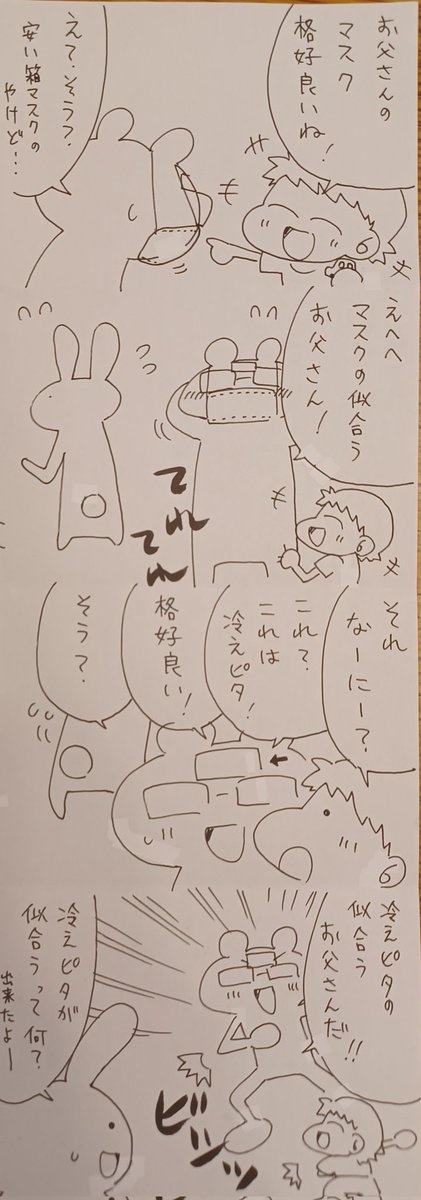 お父さんの
マスク
格好良いね!
えっ?そう?
安い箱マスクの
やけど…
えへへ
マスクの似合う
お父さん!
てれ
てれ
それ
なーにー?
これ?
これは
冷えピタ!
格好良い!
そう?
冷えピタの
似合う
お父さんだ!!
ビシッ
冷えピタが
似合うって何?
出来たよー